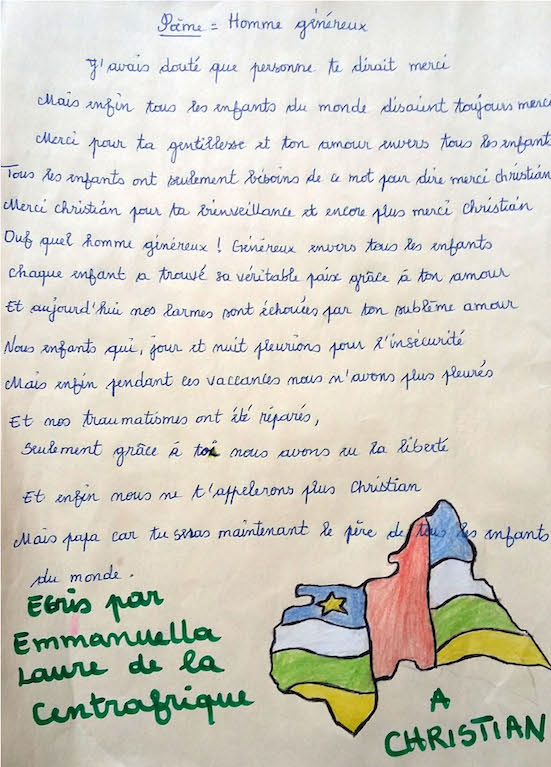 Poème = Homme généreux
J'avais douté que personne te dirait merci
Mais enfin tous les enfants du monde disaient toujours merci
Merci pour ta gentillesse et ton amour envers tous les enfants
Tous les enfants ont seulement besoins de ce mot pour dire merci christian
Merci christian pour ta bienveillance et encore plus merci Christian
Ouf quel homme généreux ! Généreux envers tous les enfants
Chaque enfant a trouvé sa véritable paix grâce à ton amour
Et aujourd'hui nos larmes sont échouées par ton sublème amour
Nous enfants qui, jour et nuit pleurions pour l'insécurité
Mais enfin pendant ces vaccances nous n'avons plus pleurés
Et nos traumatismes ont été réparés,
Seulement grâce à toi nous avons eu la liberté
Et enfin nous ne t'appelerons plus Christian
Mais papa car tu seras maintenant le père de tous les enfants
du monde.
Ecris par
Emmanuella
Laure de la
Centrafrique
A
CHRISTIAN